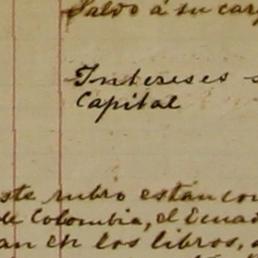 Saldo á su car
Intereses
Capital
este rubro están con
de Colombia, el Ecuad
an en los libros,